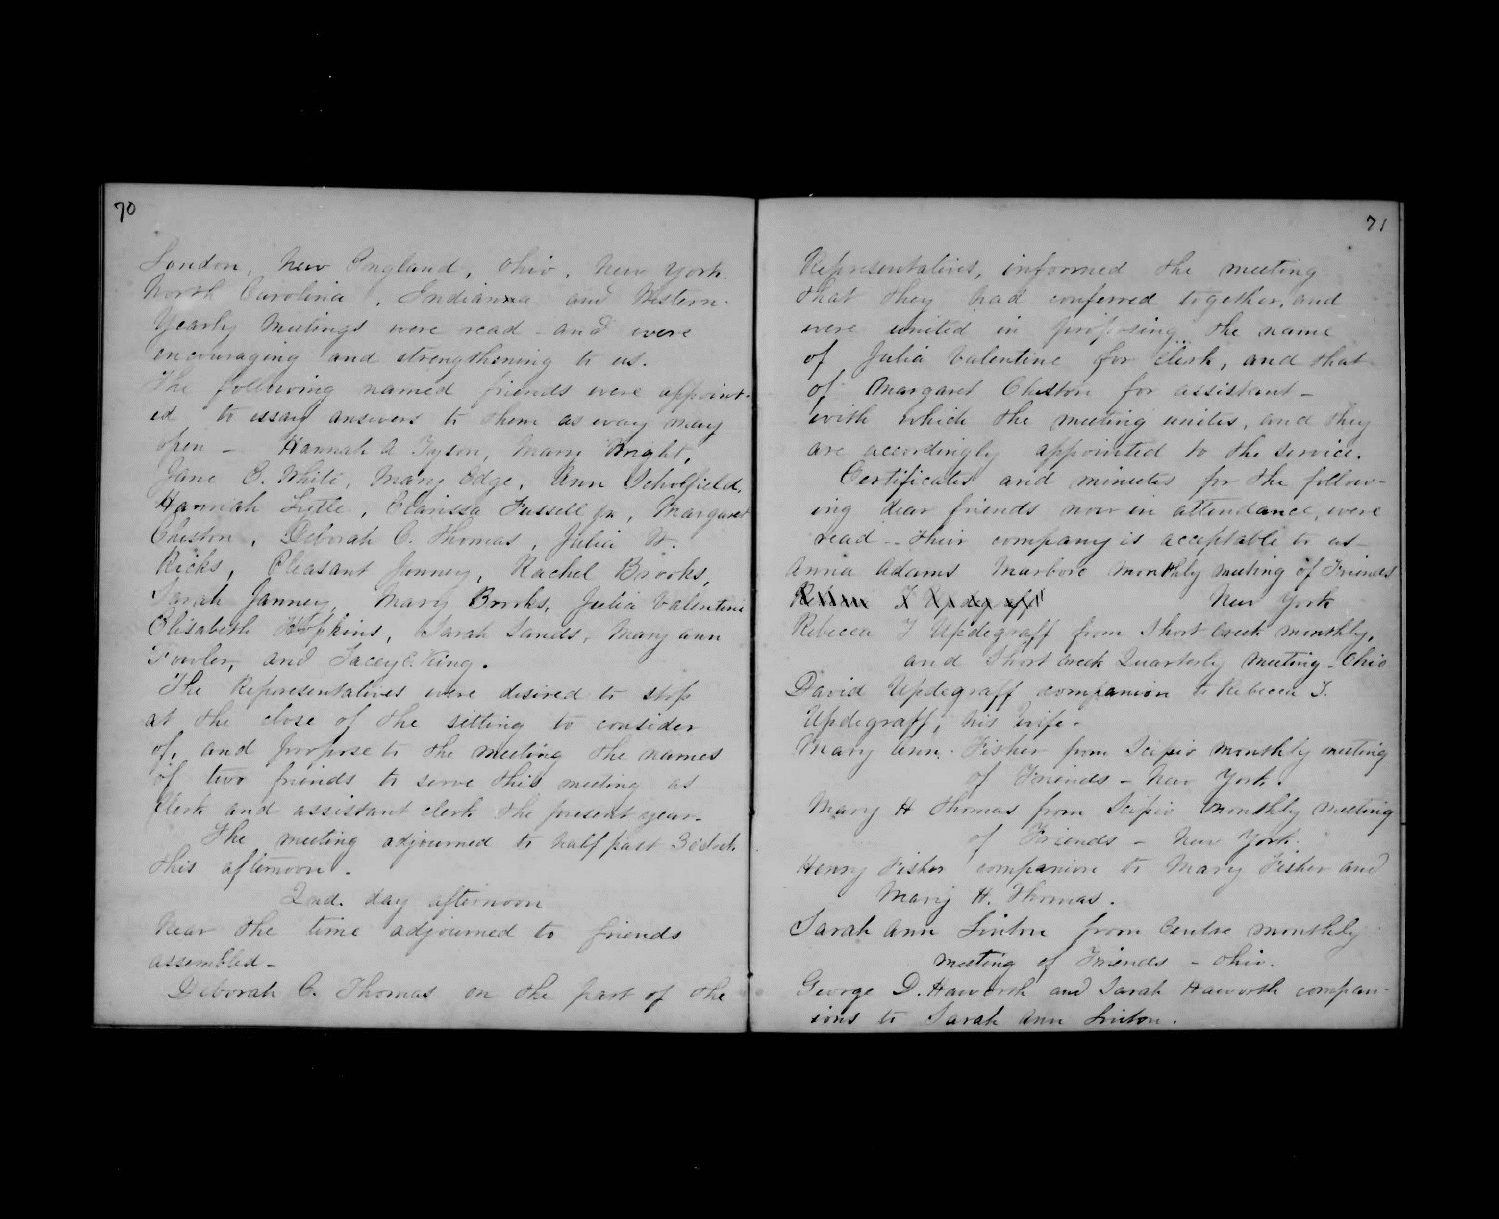 70
London, New England, Ohio, New York.
North Carolina, Indiana and Western.
Yearly Meetings were read - and were
encouraging and strengthening to us.
The following named friends were appoint-
ed, to essay answers to them as way may
open - Hannah A Tyson, Mary Wright,
Jane C. White, Mary Edge, Ann Scholfield,
Hannah Little, Clarissa Fussell Jr, Margaret
Cheston, Deborah C. Thomas, Julia W.
Ricks, Pleasant Jonney, Rachel Brooks,
Sarah Janney, Mary Brooks, Julia Valentine
Elisabeth Hopkins, Sarah Sands, Mary ann
Fowler, and Tacey C. King.
The Representatives were desired to stop
at the close of the sitting to consider
of, and porpose to the meeting the names
of two friends to serve this meeting as
Clerk and assistant clerk the present year.
The meeting adjourned to half past 3 oclock
this afternoon.
2nd. day afternoon
Near the time adjourned to friends
assembled -
Deborah C. Thomas on the part of the
71
Representatives, informed the meeting
that they had conferred together, and
were united in proposing the name
of Julia Valentine for Clerk, and that
of Margaret Cheston for assistant -
with which the meeting unites, and they
are accordingly appointed to the service.
Certificates and minutes for the follow-
ing dear friends now in attendance, were
read -- their company is acceptable to us -
Anna Adams Marboro monthly meeting of Friends
New York
Rebecca T Updegraff from Short Creek monthly,
and Short Creek Quarterly meeting - Ohio
David Updegraff companion to Rebecca T.
Updegraff, his wife -
Mary Ann Fisher from Scipio monthly meeting
of Friends - New York.
Mary H Thomas from Scipio monthly meeting
of Friends - New York.
Henry Fisher companion to Mary Fisher and
Mary H. Thomas.
Sarah Ann Linton from Centre monthly
meeting of Friends - Ohio.
George D. Haworth and Sarah Haworth compan-
ions to Sarah Ann Linton.